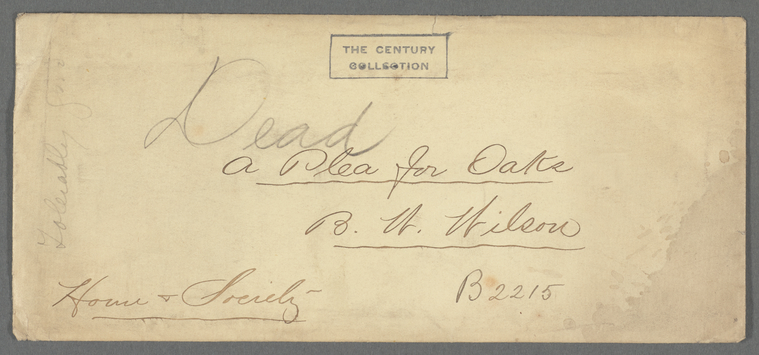 THE CENTURY
COLLECTION
Dead
A Plea for Oaks
B. W. Wilson
Home & Society
B2215
Tolerably good